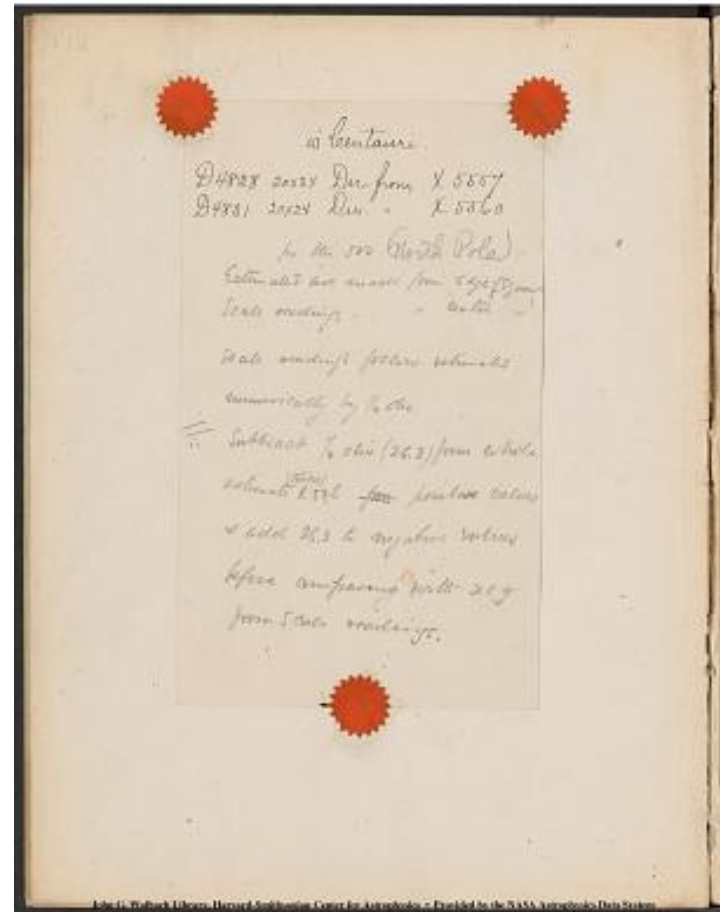 ω Centauri.
D4828 20x24 Dir. from X 5557
D4831 20x24 Dir. " X 5560
(North Pole)
Estimates are made from edge of
Scale readings " " center "
Scale readings follow estimates
numerically by ½ div
Subtract ½ div (26.3) from whole
estimate positive values
& add 26.3 to negative values
before comparing with x & y
from Scale readings.
John G. Wolbach Library, Harvard-Smithsonian Center for Astrophysics • Provided by the NASA Astrophysics Data System